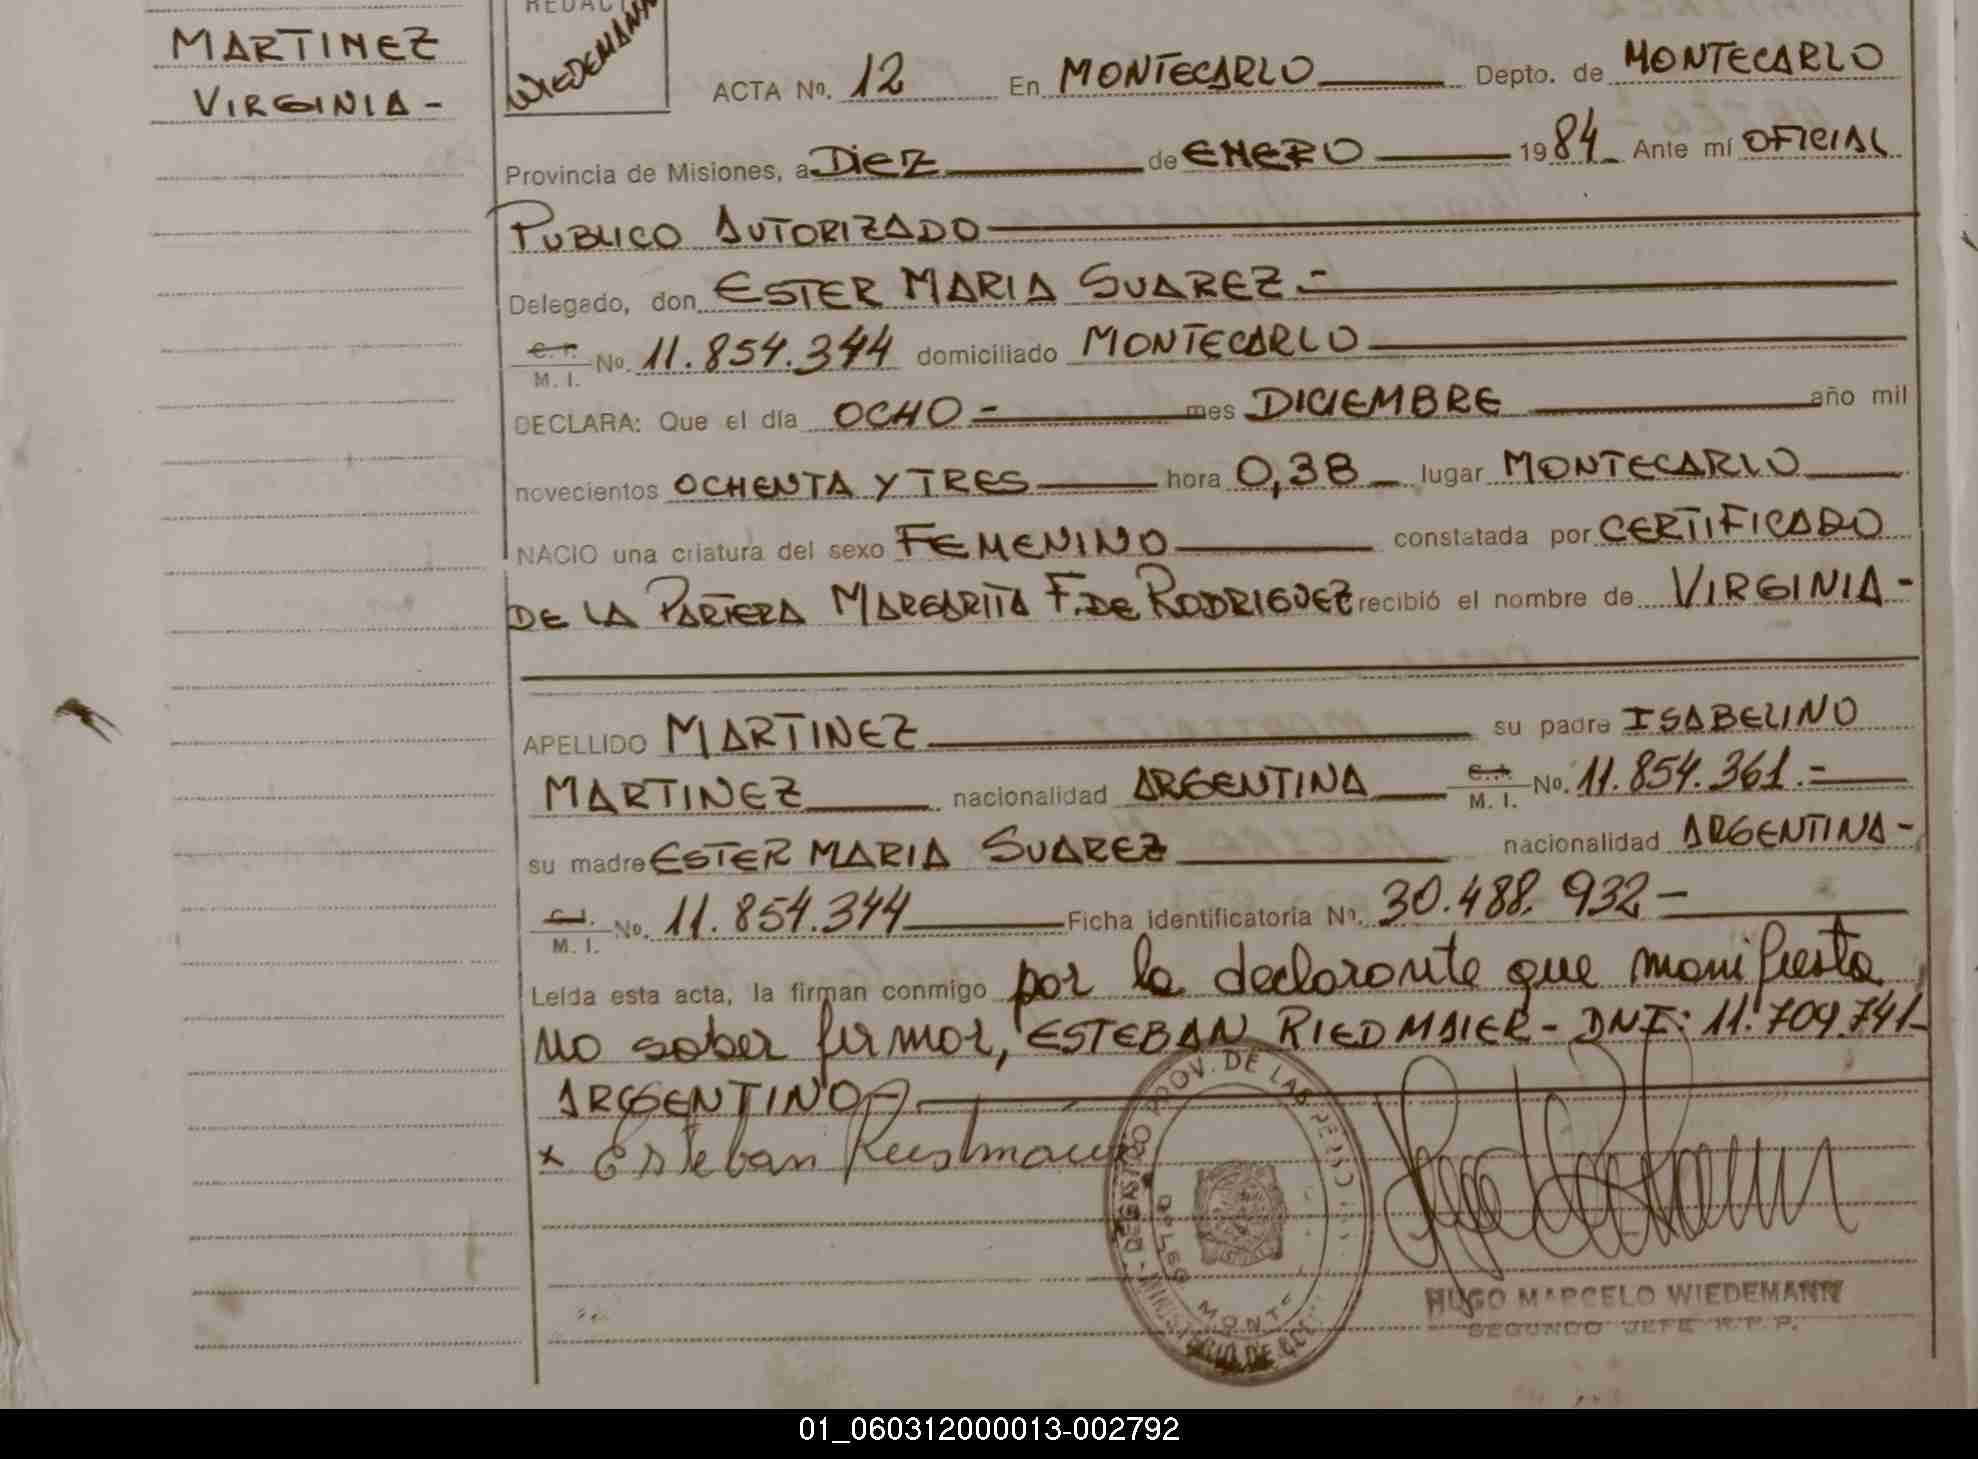 MARTINEZ
VIRGINIA -
REDACT
WIEDEMANN
ACTA Nº. 12 En MONTECARLO Depto. de MONTECARLO
Provincia de Misiones, a DIEZ de ENERO 1984 Ante mí OFICIAL
PUBLICO AUTORIZADO
Delegado, don ESTER MARIA SUAREZ.-
C. I.
M. I. Nº. 11.854.344 domiciliado MONTECARLO
DECLARA: Que el día OCHO - mes DICIEMBRE año mil
novecientos OCHENTA Y TRES hora 0,38 lugar MONTECARLO
NACIO una criatura del sexo FEMENINO constatada por CERTIFICADO
DE LA PARTERA MARGARITA F. DE RODRIGUEZ recibió el nombre de VIRGINIA -
APELLIDO MARTINEZ su padre ISABELINO
MARTINEZ nacionalidad ARGENTINA C. I.
M. I. Nº. 11.854.361.-
su madre ESTER MARIA SUAREZ nacionalidad ARGENTINA -
C. I.
M. I. Nº. 11.854.344 Ficha identificatoria Nº. 30.488.932 -
Leída esta acta, la firman conmigo por la declarante que manifiesta
no saber firmar, ESTEBAN RIEDMAIER - DNI: 11.709.741-
ARGENTINO -
x Esteban
PROV. DE LAS PERS
MINISTERIO DE GO
MONTE
HUGO MARCELO WIEDEMANN
SEGUNDO JEFE R.P.P.
01_060312000013-002792